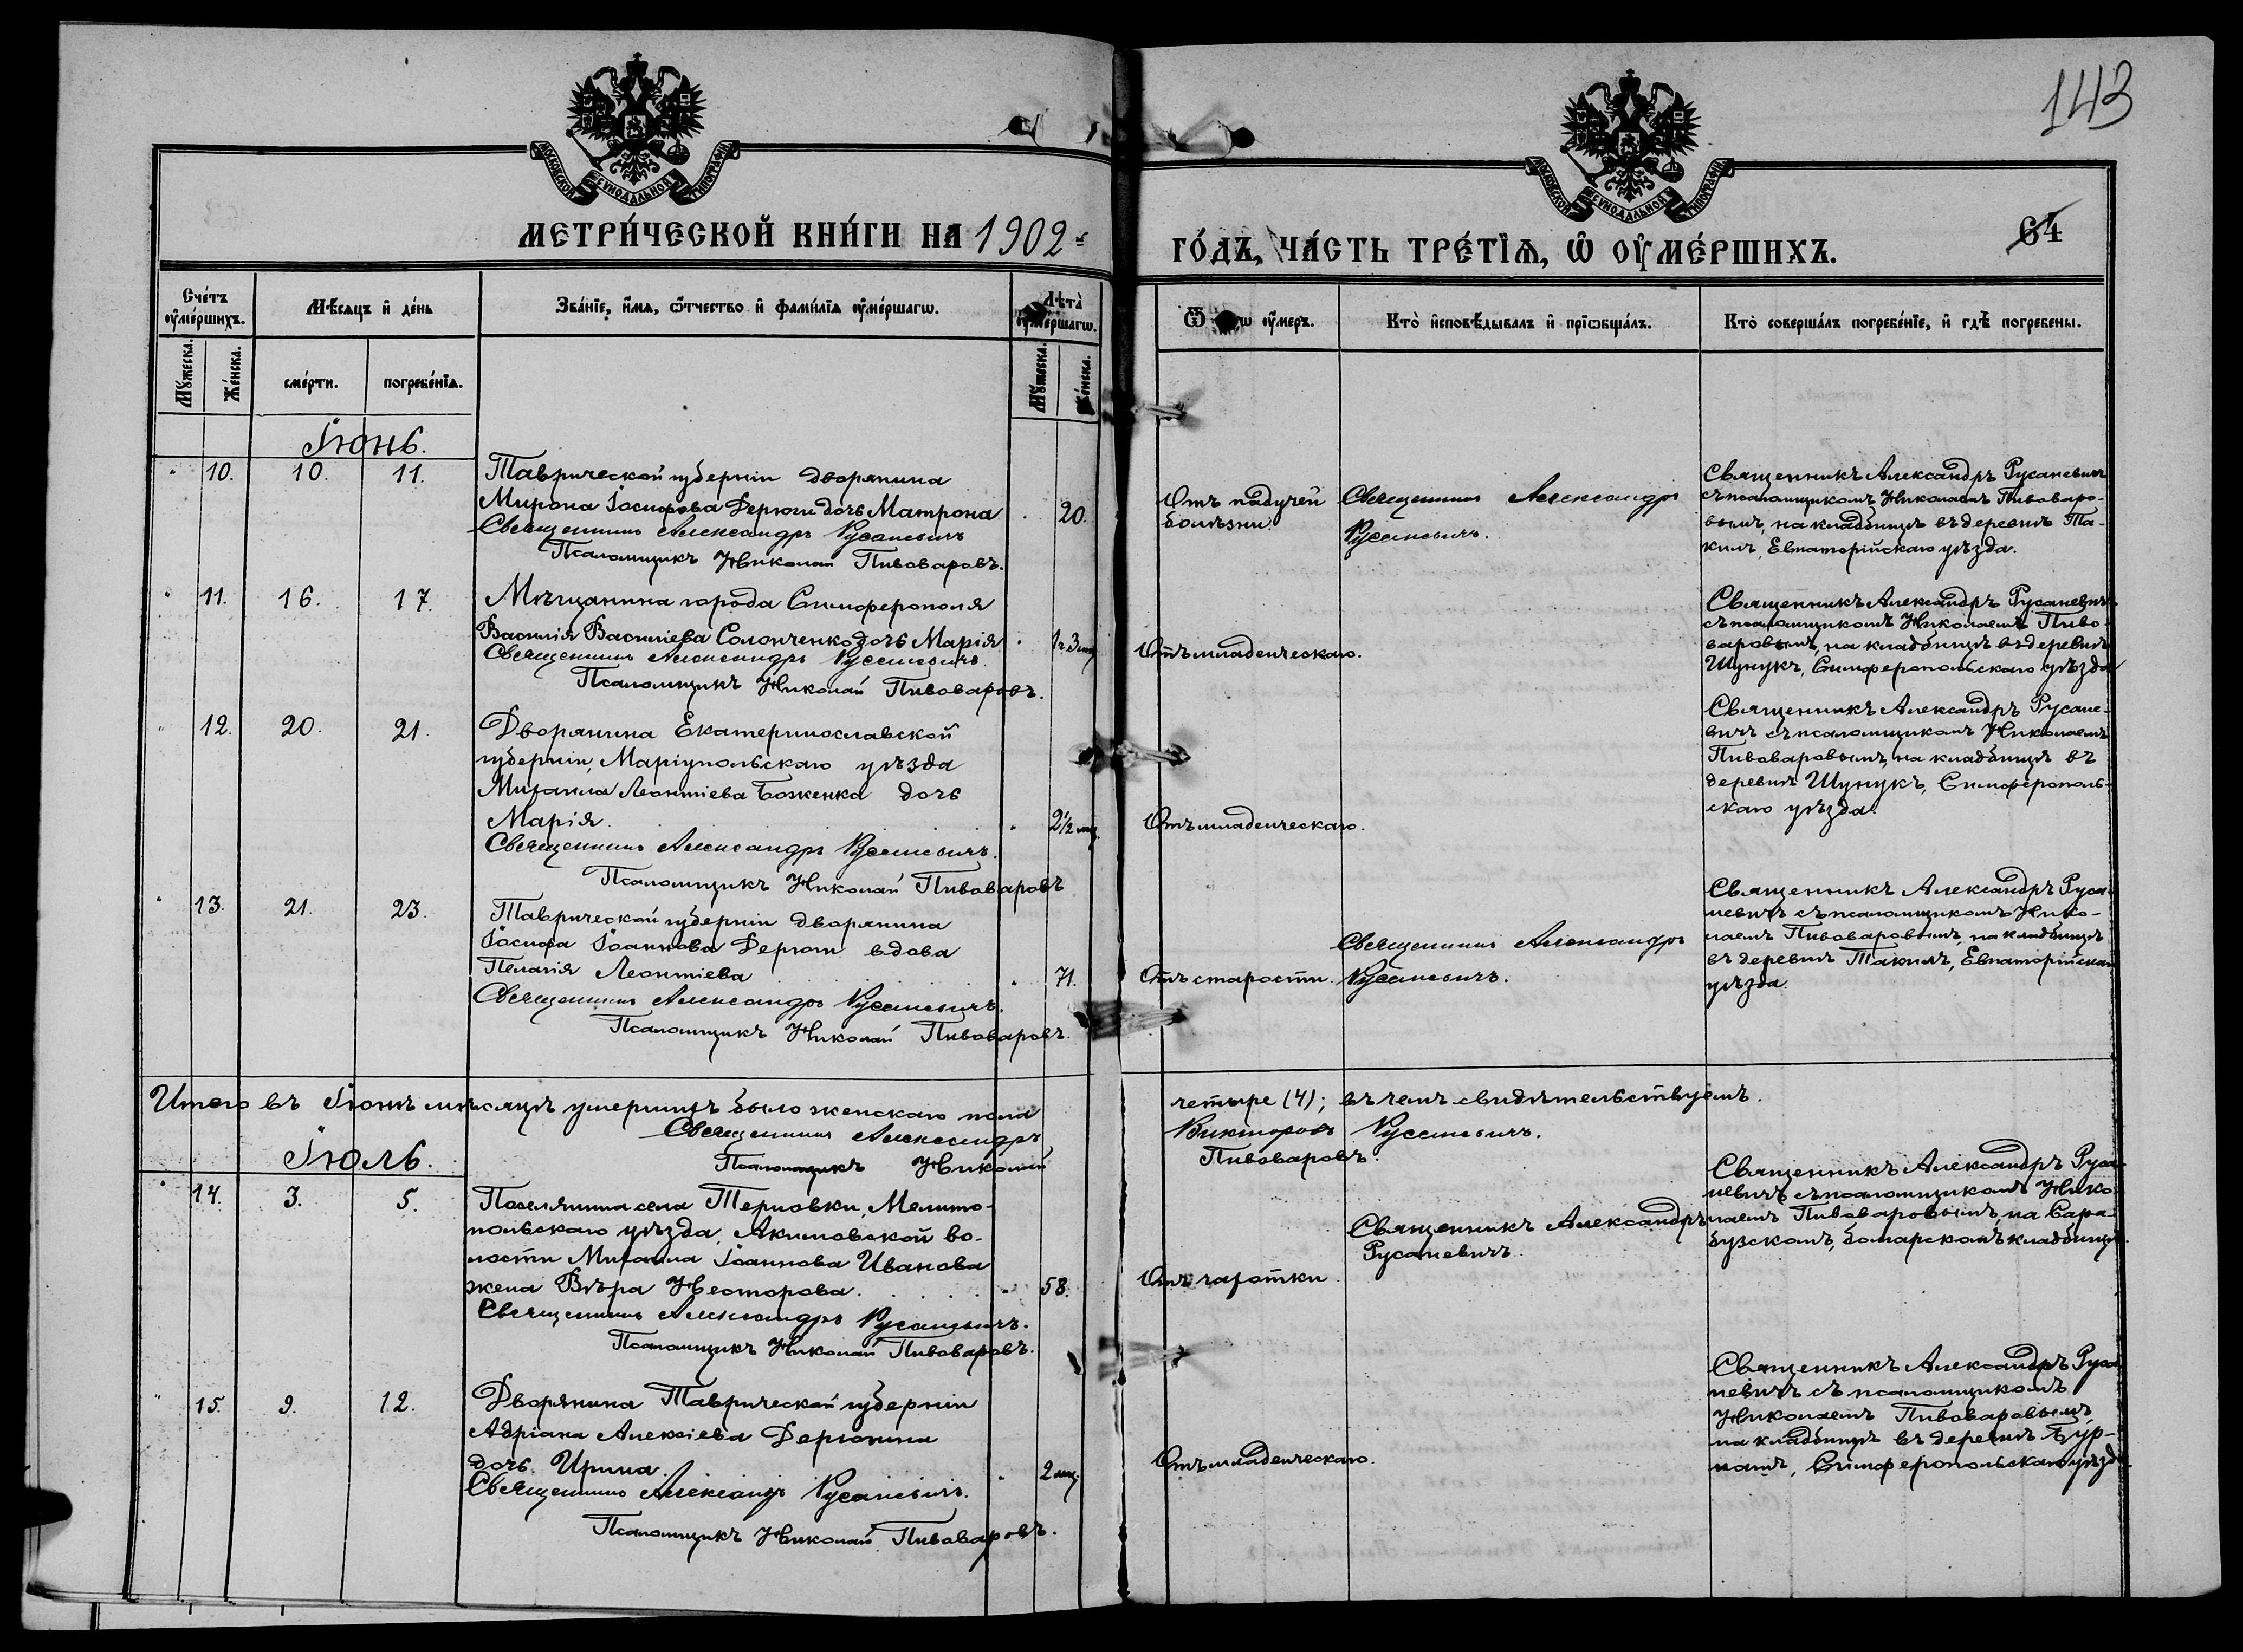 143
МОСКОВСКОЙ СѴНОДАЛЬНОЙ ТИПОГРАФІИ
МОСКОВСКОЙ СѴНОДАЛЬНОЙ ТИПОГРАФІИ
МЕТРИ́ЧЕСКОЙ КНИ́ГИ НА 1902 г
ГО́ДЪ, ЧА́СТЬ ТРЕ́ТІѦ, Ѡ ОУМЕ́РШИХЪ.
64
Сче́тъ оумершихъ.
Мѣсяцъ и де́нь
Зва́нїе, и҆́мѧ, ѻ҆́тчество и҆ фами́лїѧ оу҆ме́ршагѡ.
Лѣта̀ оу҆ме́ршагѡ.
оу҆меръ.
Кто̀ и҆сповѣ́дывалъ и҆ прїѡбща́лъ.
Кто̀ соверша́лъ погребе́нїе, и҆ гдѣ̀ погребены.
Мꙋ́жеска.
Же́нска.
сме́рти.
погребе́нїѧ.
Мꙋ́жеска.
Же́нска.
Іюнь.
10. 10. 11.
Таврической губерніи дворянина
Мирона Іосифова Дерюги дочь Матрона 20.
Священникъ Александръ Русаневичъ
Псаломщикъ Николай Пивоваровъ.
Отъ падучей
болѣзни.
Священникъ Александръ
Русаневичъ.
Священникъ Александръ Русаневичъ
съ псаломщикомъ Николаемъ Пивоваро-
вымъ, на кладбищѣ въ деревнѣ Та-
килъ, Евпаторійскаго уѣзда.
11. 16. 17.
Мѣщанина города Симферополя
Василія Василіева Солонченко дочь Марія 1г. 3 мѣс
Священникъ Александръ Русаневичъ.
Псаломщикъ Николай Пивоваровъ.
Отъ младенческаго.
Священникъ Александръ Русаневичъ
съ псаломщикомъ Николаемъ Пиво-
варовымъ, на кладбищѣ въ деревнѣ
Шунукъ, Симферопольскаго уѣзда
12. 20. 21.
Дворянина Екатеринославской
губерніи, Маріупольскаго уѣзда
Михаила Леонтіева Боженка дочь
Марія. 2½ мѣс.
Священникъ Александръ Русаневичъ.
Псаломщикъ Николай Пивоваровъ
Отъ младенческаго.
Священникъ Александръ Русане-
вичъ съ псаломщикомъ Николаемъ
Пивоваровымъ, на кладбищѣ въ
деревнѣ Шунукъ, Симферополь-
скаго уѣзда.
13. 21. 23.
Таврической губерніи дворянина
Іосифа Іоаннова Дерюги вдова
Пелагія Леонтіева 71.
Священникъ Александръ Русаневичъ.
Псаломщикъ Николай Пивоваровъ.
Отъ старости.
Священникъ Александръ
Русаневичъ.
Священникъ Александръ Руса-
невичъ съ псаломщикомъ Нико-
лаемъ Пивоваровымъ, на кладбищѣ
въ деревнѣ Такилъ, Евпаторійскаго
уѣзда.
Итого въ Іюнѣ мѣсяцѣ умершихъ было женскаго пола четыре (4); въ чемъ свидѣтельствуемъ.
Священникъ Александръ Викторовъ Русаневичъ.
Псаломщикъ Николай Пивоваровъ.
Іюль.
14. 3. 5.
Поселянина села Терновки, Мелито-
польскаго уѣзда, Акимовской во-
лости Михаила Іоаннова Иванова
жена Вѣра Несторова. 58.
Священникъ Александръ Русаневичъ.
Псаломщикъ Николай Пивоваровъ.
Отъ чахотки.
Священникъ Александръ
Русаневичъ.
Священникъ Александръ Руса-
невичъ съ псаломщикомъ Нико-
лаемъ Пивоваровымъ, на Сара-
бузскомъ, болгарскомъ кладбищѣ.
15. 9. 12.
Дворянина Таврической губерніи
Адріана Алексіева Дерюгина
дочь Ирина. 2 мѣс.
Священникъ Александръ Русаневичъ.
Псаломщикъ Николай Пивоваровъ.
Отъ младенческаго.
Священникъ Александръ Руса-
невичъ съ псаломщикомъ
Николаемъ Пивоваровымъ,
на кладбищѣ въ деревнѣ Бур-
Симферопольскаго уѣзда.